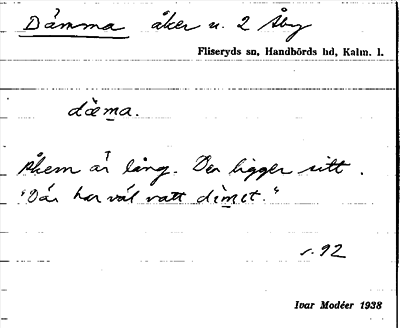 Dämma åker u. 2 Åby
Fliseryds sn, Handbörds hd, Kalm. l.
dæ̀ma.
Åkern är lång. Den ligger sitt.
"Där har väl vatt dämet."
s. 92
Ivar Modéer 1938